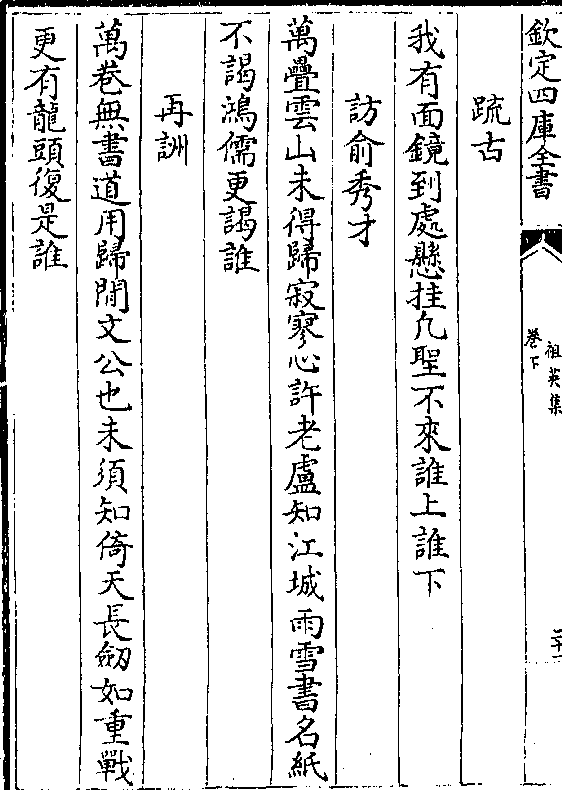 欽定四庫全書
祖英集
卷下
二十一
䟽古
我有面鏡到處懸挂凡聖不來誰上誰下
訪俞秀才
萬疊雲山未得歸寂寥心許老盧知江城雨雪書名紙
不謁鴻儒更謁誰
再詶
萬卷無書道用歸閒文公也未須知倚天長劒如重戰
更有龍頭復是誰